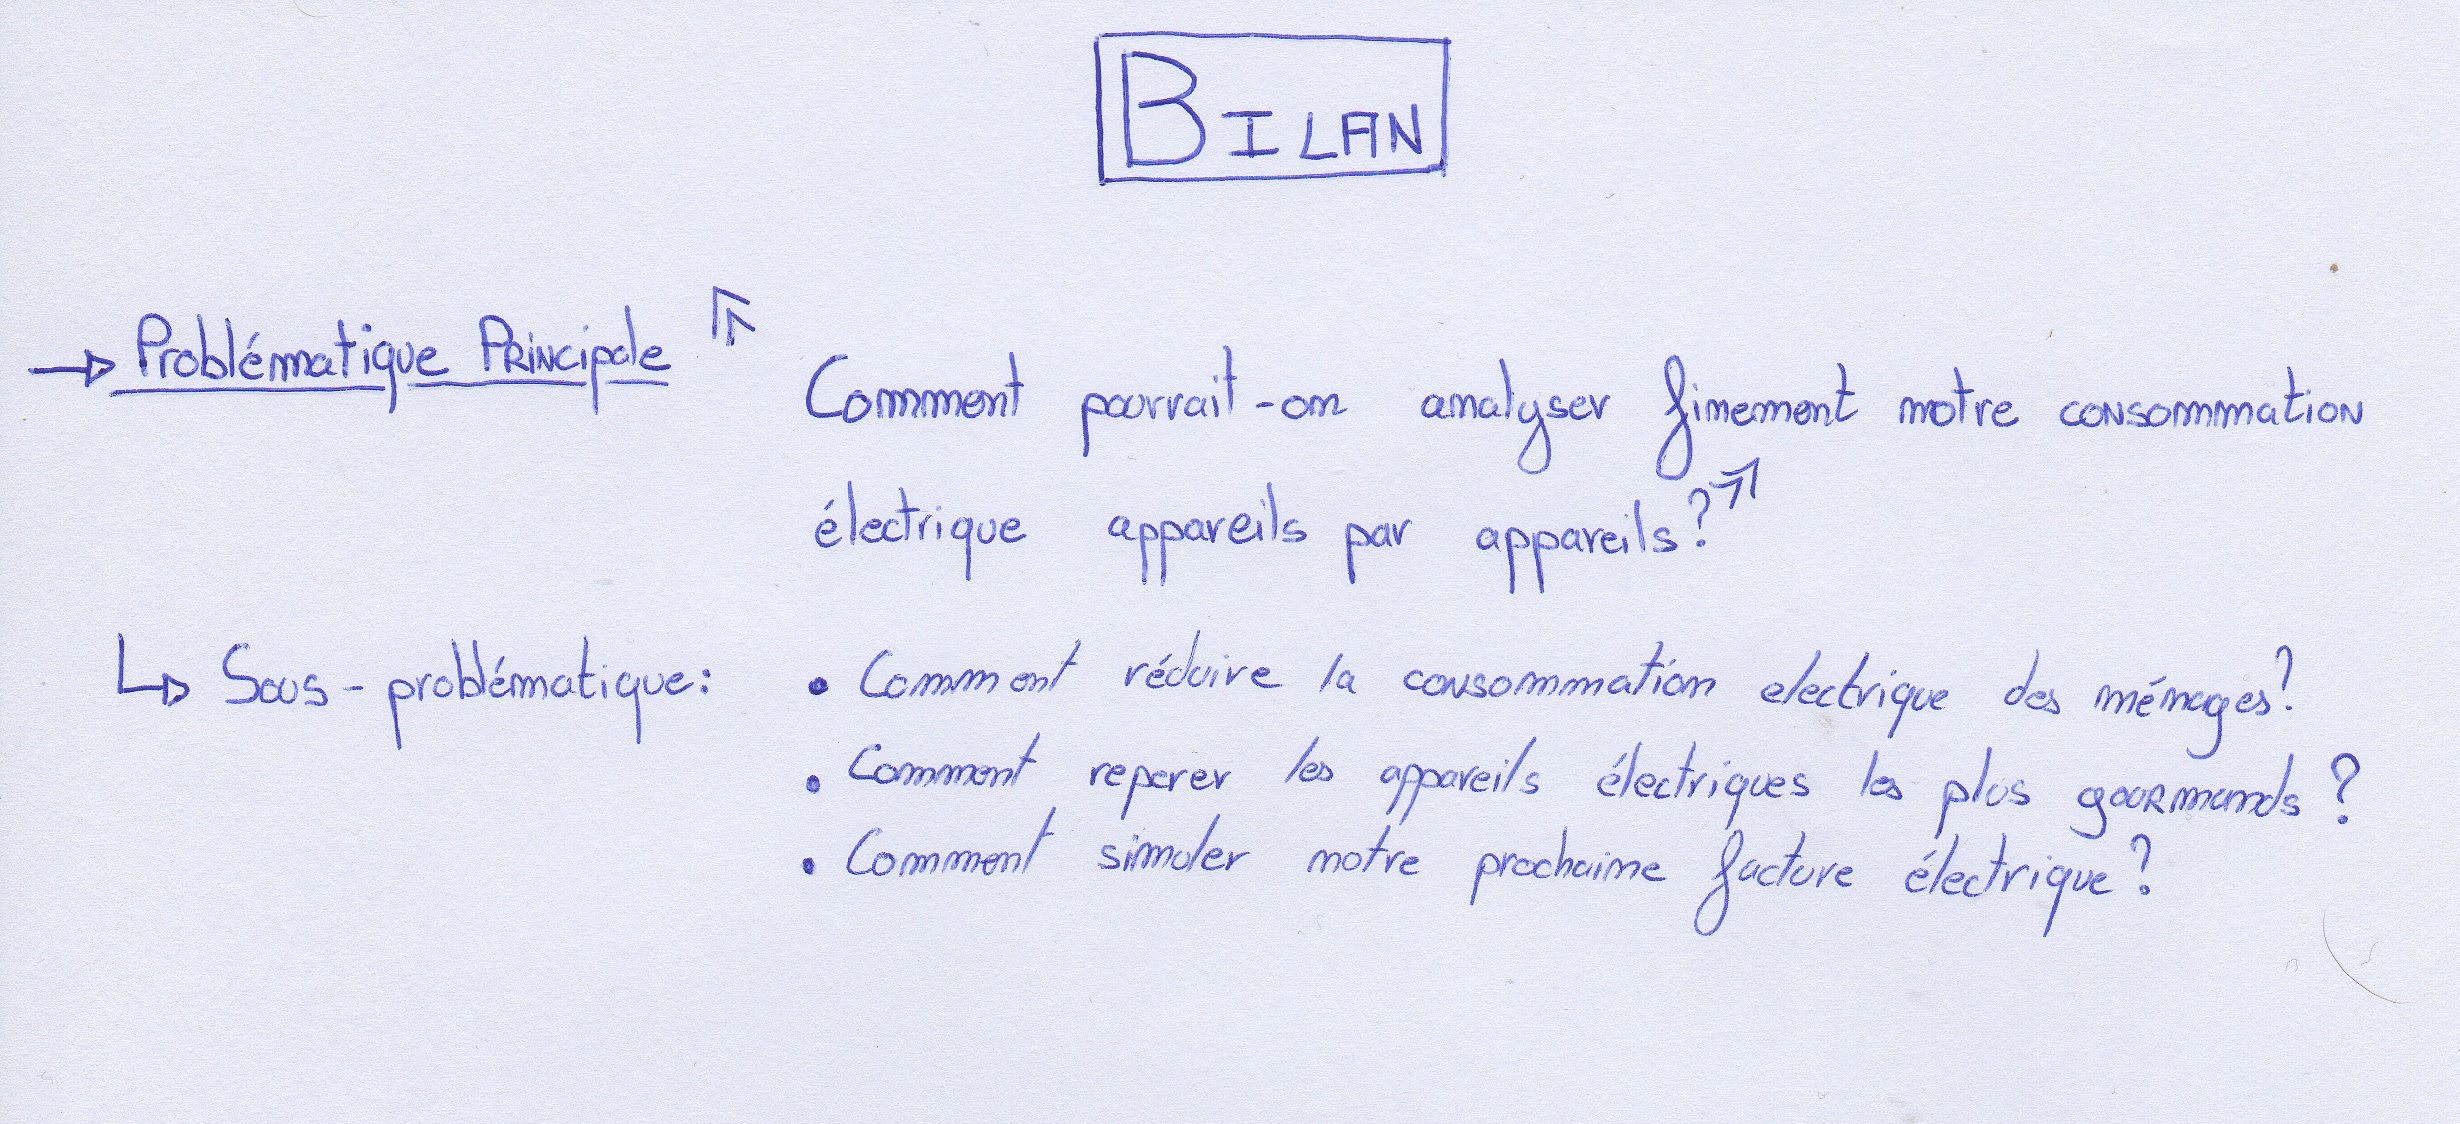 BILAN
→ Problématique Principale «
Comment pourrait-on analyser finement notre consommation
électrique appareils par appareils? »
↳ Sous-problématique: • Comment réduire la consommation electrique des ménages?
• Comment reperer les appareils électriques les plus gourmands ?
• Comment simuler notre prochaine facture électrique?